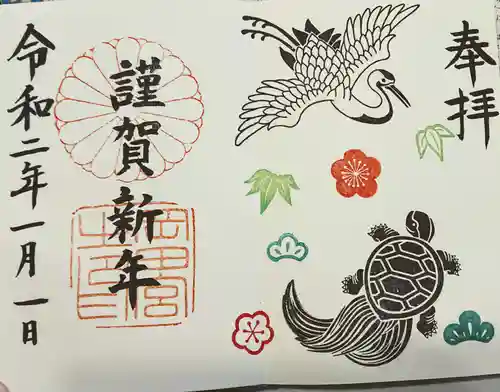 奉拝
謹賀新年
令和二年一月一日